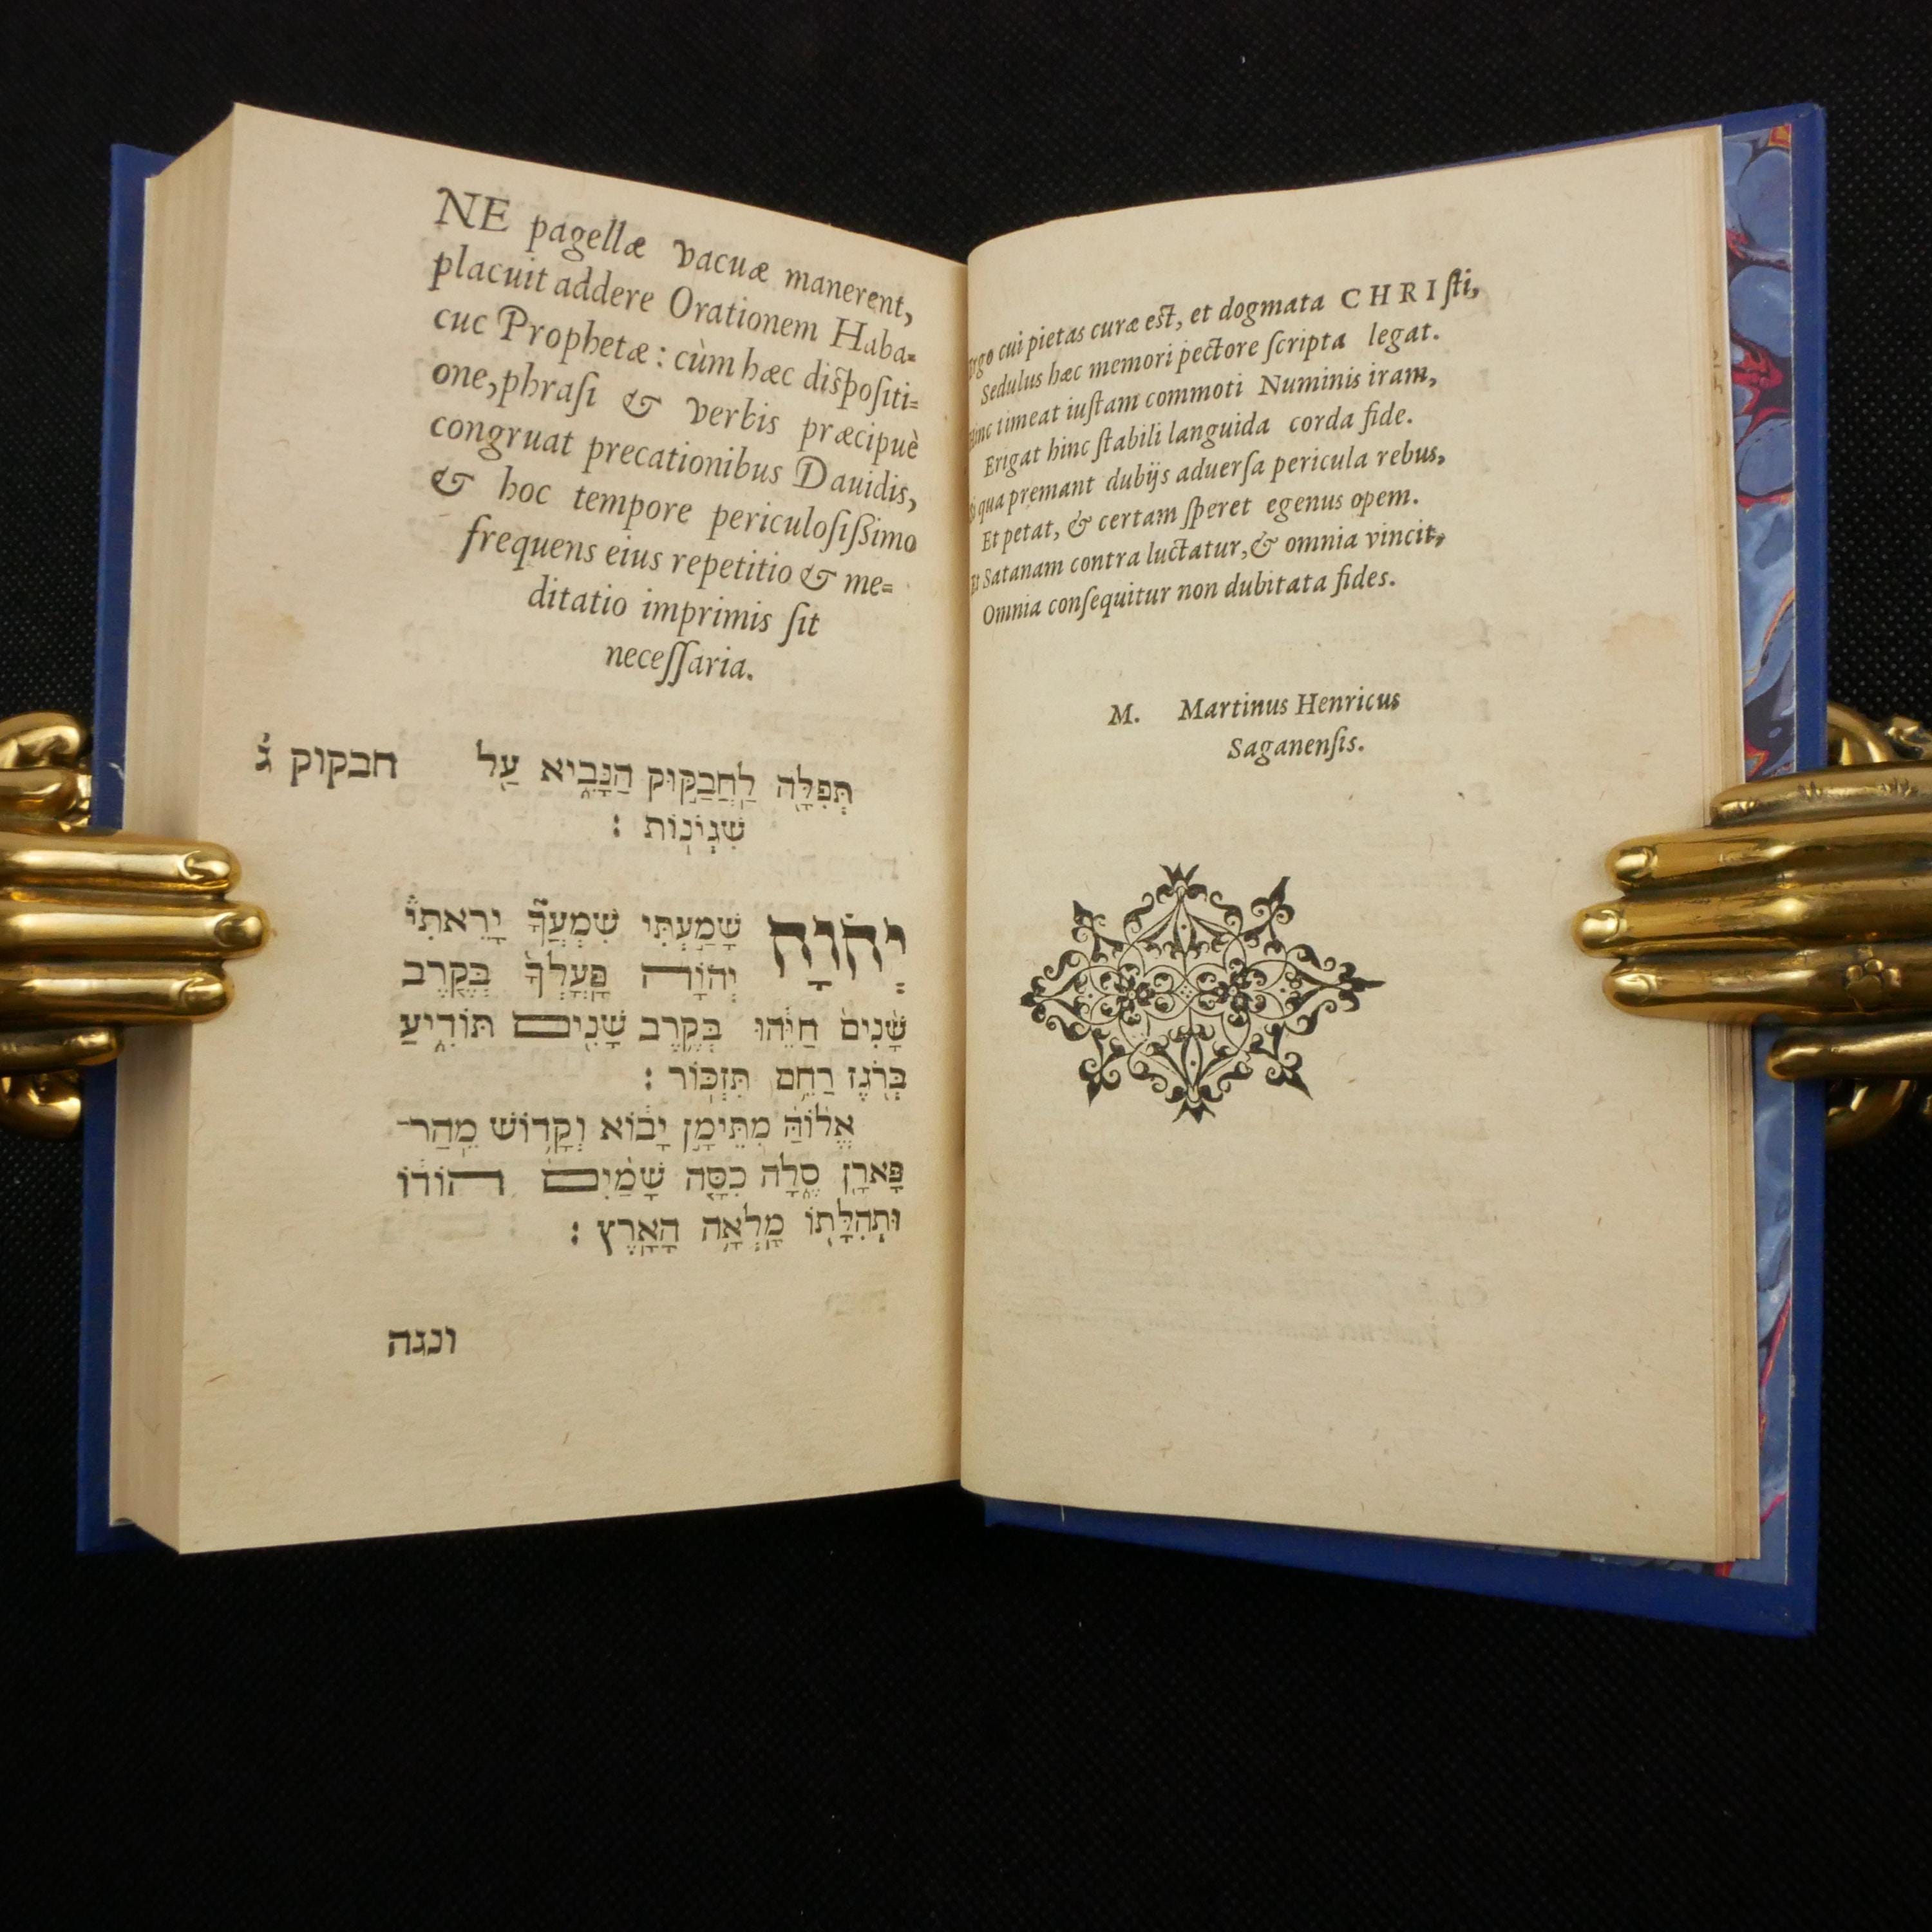 NE pagellæ vacuæ manerent,
placuit addere Orationem Haba=
cuc Prophetæ: cùm hæc diſpoſiti=
one, phraſi & verbis præcipuè
congruat precationibus Dauidis,
& hoc tempore periculoſiſsimo
frequens eius repetitio & me=
ditatio imprimis ſit
neceſſaria.
תְּפִלָּ֖ה לַחֲבַקּ֣וּק הַנָּבִ֑יא עַ֖ל חבקוק ג֗
שִׁגְיֹנֽוֹת :
יְהֹוָה שָׁמַ֣עְתִּי שִׁמְעֲךָ֮ יָרֵאתִי֒
יְהוָ֗ה פׇּֽעׇלְךָ֙ בְּקֶ֤רֶב
שָׁנִים֙ חַיֵּ֔יהוּ בְּקֶ֥רֶב שָׁנִ֖ים תּוֹדִ֑יעַ
בְּרֹ֖גֶז רַחֵ֥ם תִּזְכּֽוֹר :
אֱל֙וֹהַּ֙ מִתֵּימָ֣ן יָב֔וֹא וְקָד֥וֹשׁ מֵֽהַר־
פָּארָ֖ן סֶ֑לָה כִּסָּ֤ה שָׁמַ֙יִם֙ הוֹד֔וֹ
וּתְהִלָּת֖וֹ מָלְאָ֥ה הָאָֽרֶץ :
ונגה
cui pietas curæ eſt, et dogmata CHRIſti,
Sedulus hæc memori pectore ſcripta legat.
timeat iuſtam commoti Numinis iram,
Erigat hinc ſtabili languida corda fide.
qua premant dubijs aduerſa pericula rebus,
Et petat, & certam ſperet egenus opem.
Et Satanam contra luctatur, & omnia vincit,
Omnia conſequitur non dubitata fides.
M. Martinus Henricus
Saganenſis.